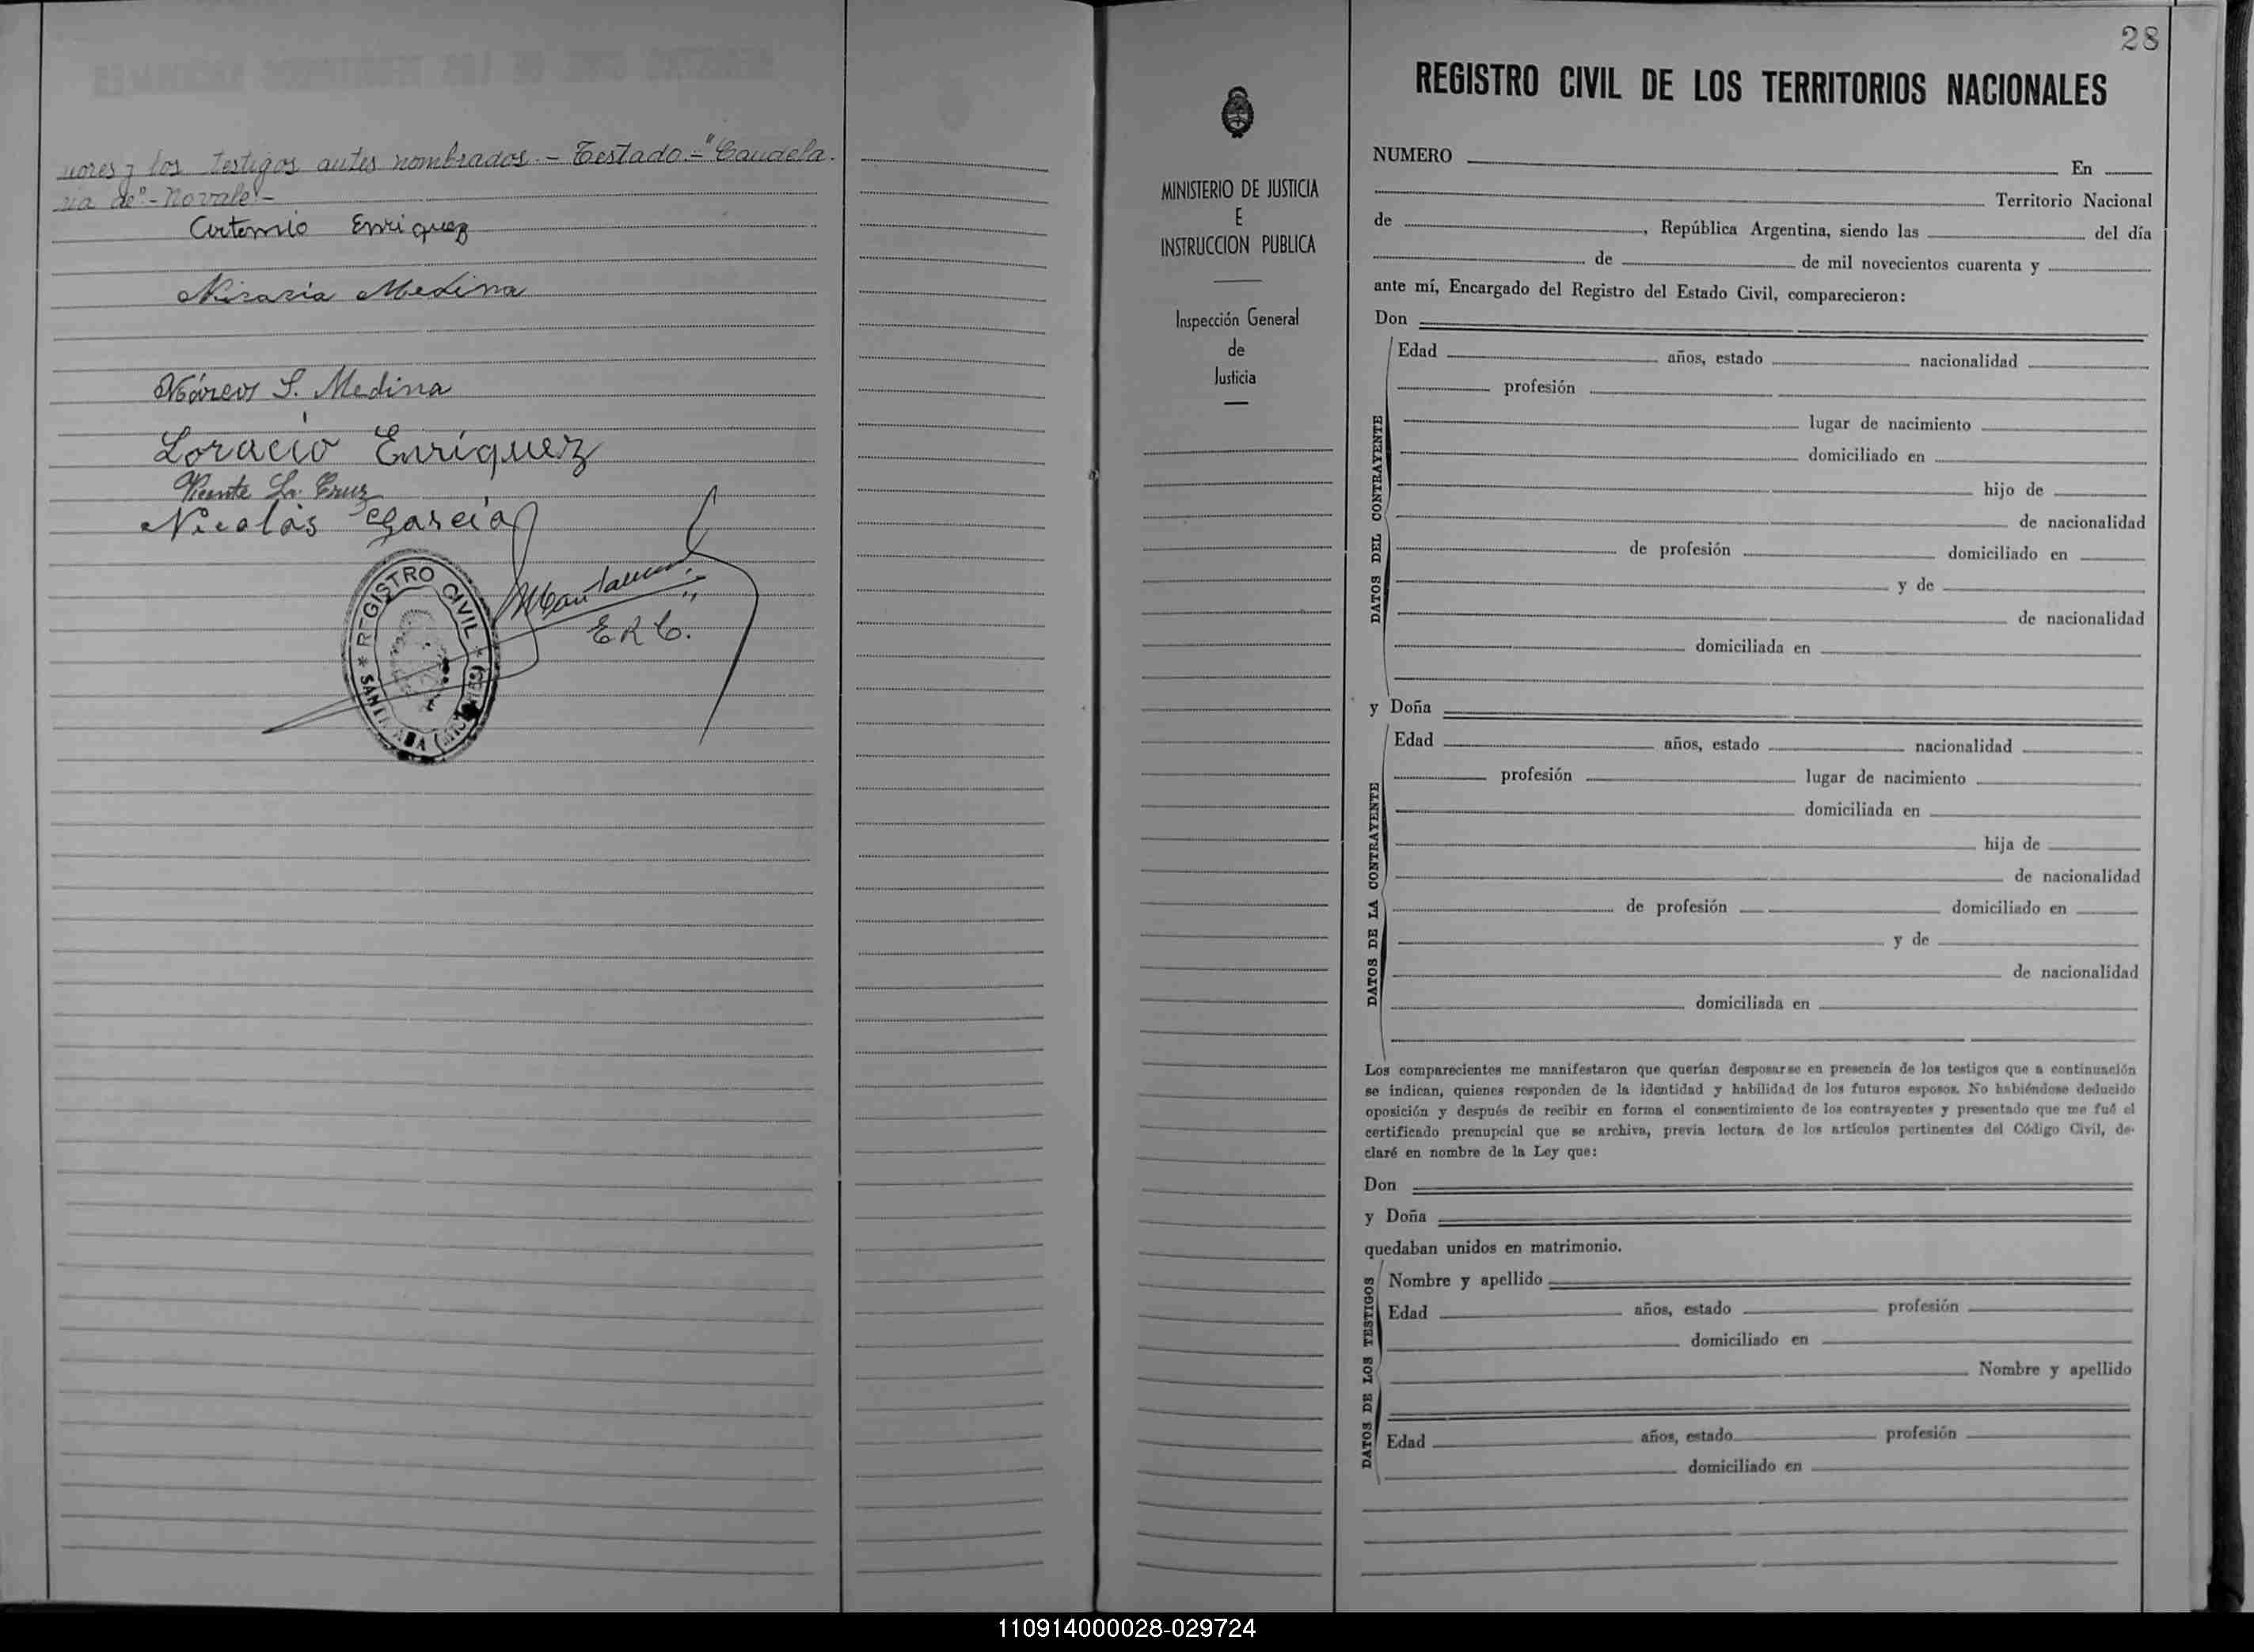 nores y los testigos antes nombrados.- Testado.- "Candela.
ria de".- No vale.-
Artemio Enriquez
Nizaria Medina
Márcos S. Medina
Loracio Enríquez
Vicente La Cruz
Nicolás Garcia
E.R.C.
REGISTRO CIVIL
SANT ANA (MISIONES)
MINISTERIO DE JUSTICIA
E
INSTRUCCION PUBLICA
Inspección General
de
Justicia
28
REGISTRO CIVIL DE LOS TERRITORIOS NACIONALES
NUMERO En
Territorio Nacional
de , República Argentina, siendo las del día
de de mil novecientos cuarenta y
ante mí, Encargado del Registro del Estado Civil, comparecieron:
Don
DATOS DEL CONTRAYENTE
Edad años, estado nacionalidad
profesión
lugar de nacimiento
domiciliado en
hijo de
de nacionalidad
de profesión domiciliado en
y de
de nacionalidad
domiciliada en
y Doña
DATOS DE LA CONTRAYENTE
Edad años, estado nacionalidad
profesión lugar de nacimiento
domiciliada en
hija de
de nacionalidad
de profesión domiciliado en
y de
de nacionalidad
domiciliada en
Los comparecientes me manifestaron que querían desposarse en presencia de los testigos que a continuación
se indican, quienes responden de la identidad y habilidad de los futuros esposos. No habiéndose deducido
oposición y después de recibir en forma el consentimiento de los contrayentes y presentado que me fué el
certificado prenupcial que se archiva, previa lectura de los artículos pertinentes del Código Civil, de-
claré en nombre de la Ley que:
Don
y Doña
quedaban unidos en matrimonio.
DATOS DE LOS TESTIGOS
Nombre y apellido
Edad años, estado profesión
domiciliado en
Nombre y apellido
Edad años, estado profesión
domiciliado en
110914000028-029724